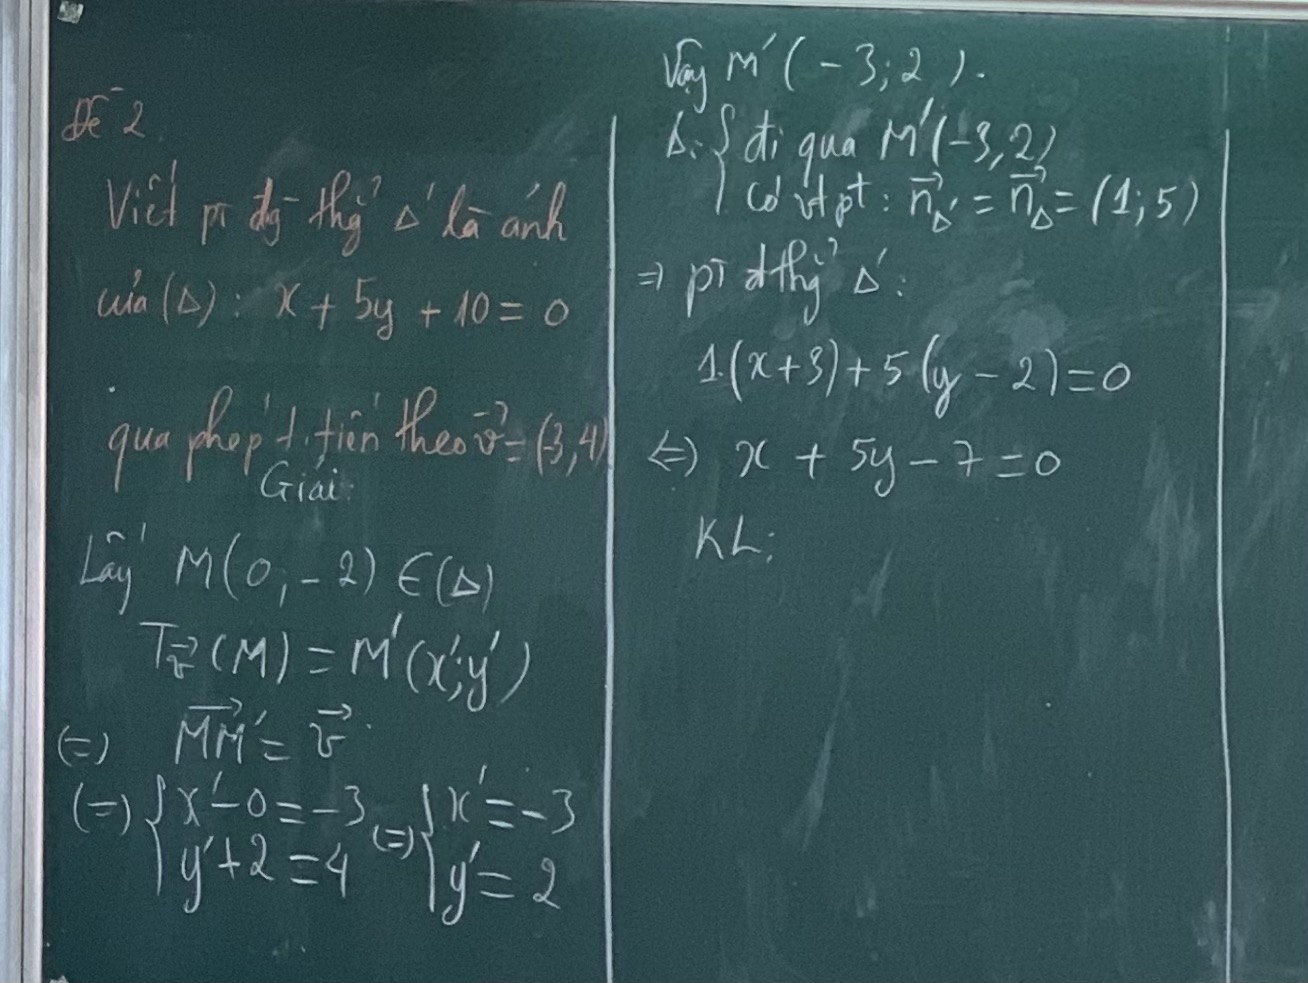 Đề 2.
Viết pt đg thg̉ Δ' là ảnh
của (Δ): x + 5y + 10 = 0
qua phép t. tiến theo v⃗ = (-3,4)
Giải:
Lấy M(0; -2) ∈ (Δ)
T_v⃗ (M) = M'(x';y')
(=) MM'⃗ = v⃗
(=) { x' - 0 = -3 (=) { x' = -3
y' + 2 = 4 y' = 2
Vậy M'(-3; 2).
Δ': { đi qua M'(-3,2)
có vt pt: n⃗_Δ' = n⃗_Δ = (1; 5)
⇒ pt đ thg̉ Δ':
1.(x+3) + 5(y - 2) = 0
⇔ x + 5y - 7 = 0
KL: